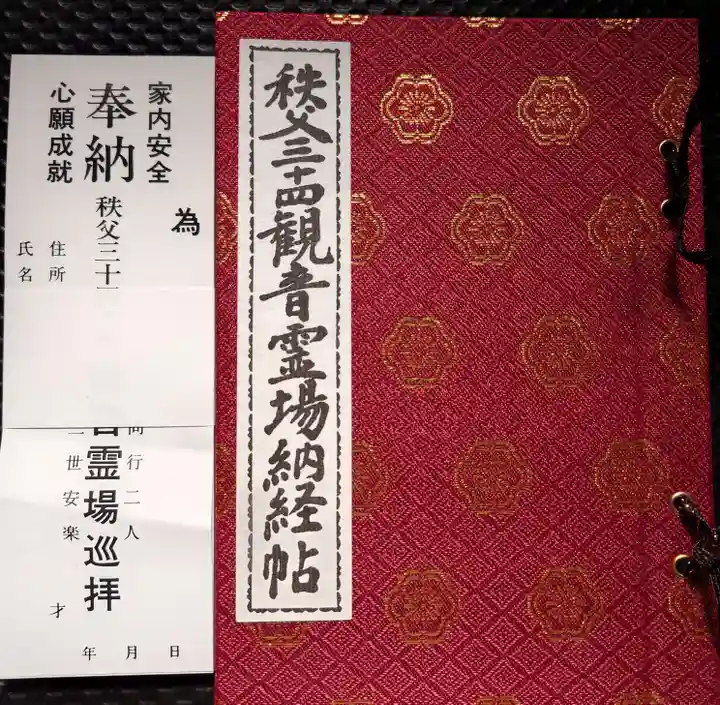 秩父三十四観音霊場納経帖
為
家内安全
奉納秩父三十
心願成就
住所
氏名
同行二人
音霊場巡拝
二世安楽
才
年月日